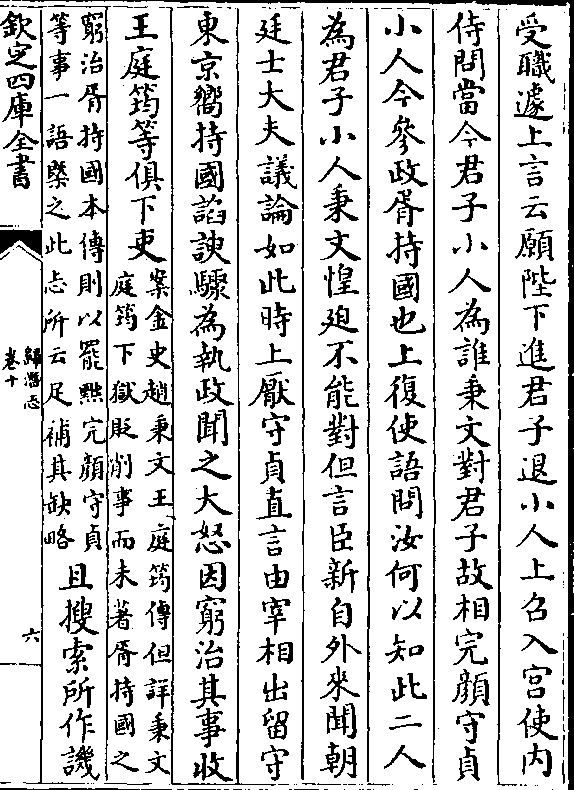 受職遽上言云願陛下進君子退小人上召入宫使内
侍問當今君子小人為誰秉文對君子故相完顔守貞
小人今參政胥持國也上復使語問汝何以知此二人
為君子小人秉文惶廹不能對但言臣新自外來聞朝
廷士大夫議論如此時上厭守貞直言由宰相出留守
東京嚮持國諂諛驟為執政聞之大怒因窮治其事收
王庭筠等俱下吏
案金史趙秉文王庭筠傳但詳秉文
庭筠下獄貶削事而未著胥持國之
窮治胥持國本傳則以罷黜完顔守貞
等事一語槩之此志所云足補其缺略
且搜索所作譏
欽定四庫全書
歸潛志
卷十
六